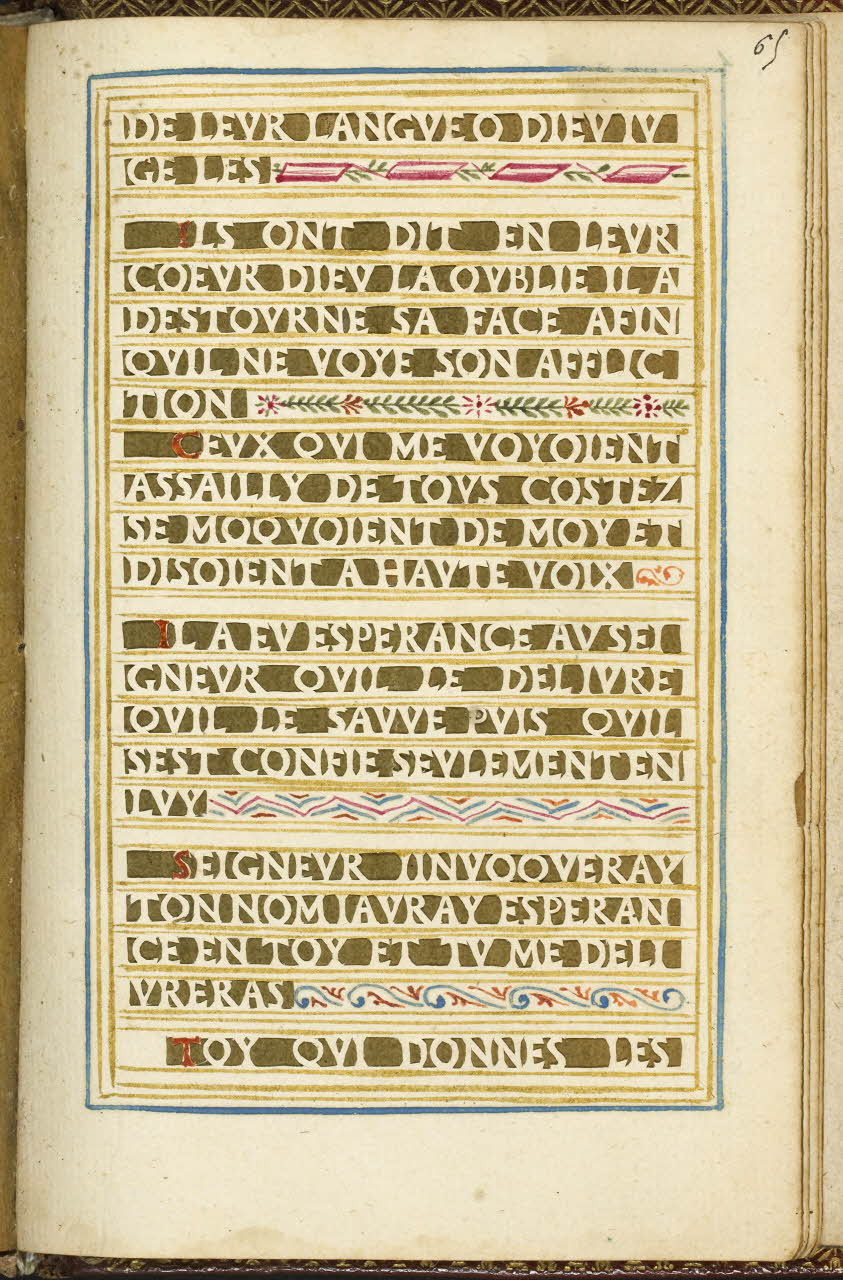 65
DE LEVR LANGVE O DIEV IV
GE LES
ILS ONT DIT EN LEVR
COEVR DIEV LA OVBLIE IL A
DESTOVRNE SA FACE AFIN
QVIL NE VOYE SON AFFLIC
TION
CEVX QVI ME VOYOIENT
ASSAILLY DE TOVS COSTEZ
SE MOQVOIENT DE MOY ET
DISOIENT A HAVTE VOIX
IL A EV ESPERANCE AV SEI
GNEVR QVIL LE DELIVRE
QVIL LE SAVVE PVIS QVIL
SEST CONFIE SEVLEMENT EN
LVY
SEIGNEVR IINVOQVERAY
TON NOM IAVRAY ESPERAN
CE EN TOY ET TV ME DELI
VRERAS
TOY QVI DONNES LES